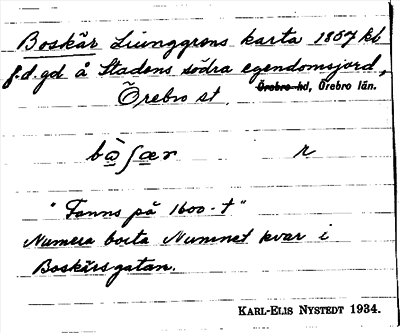 Boskär Ljunggrens karta 1857 kb
f.d. gd å Stadens södra egendomsjord,
Örebro st, Örebro hd, Örebro län.
bò̱ʃæ̱r r
"Fanns på 1600-t"
Numera borta Numnet kvar i
Boskärsgatan.
KARL-ELIS NYSTEDT 1934.